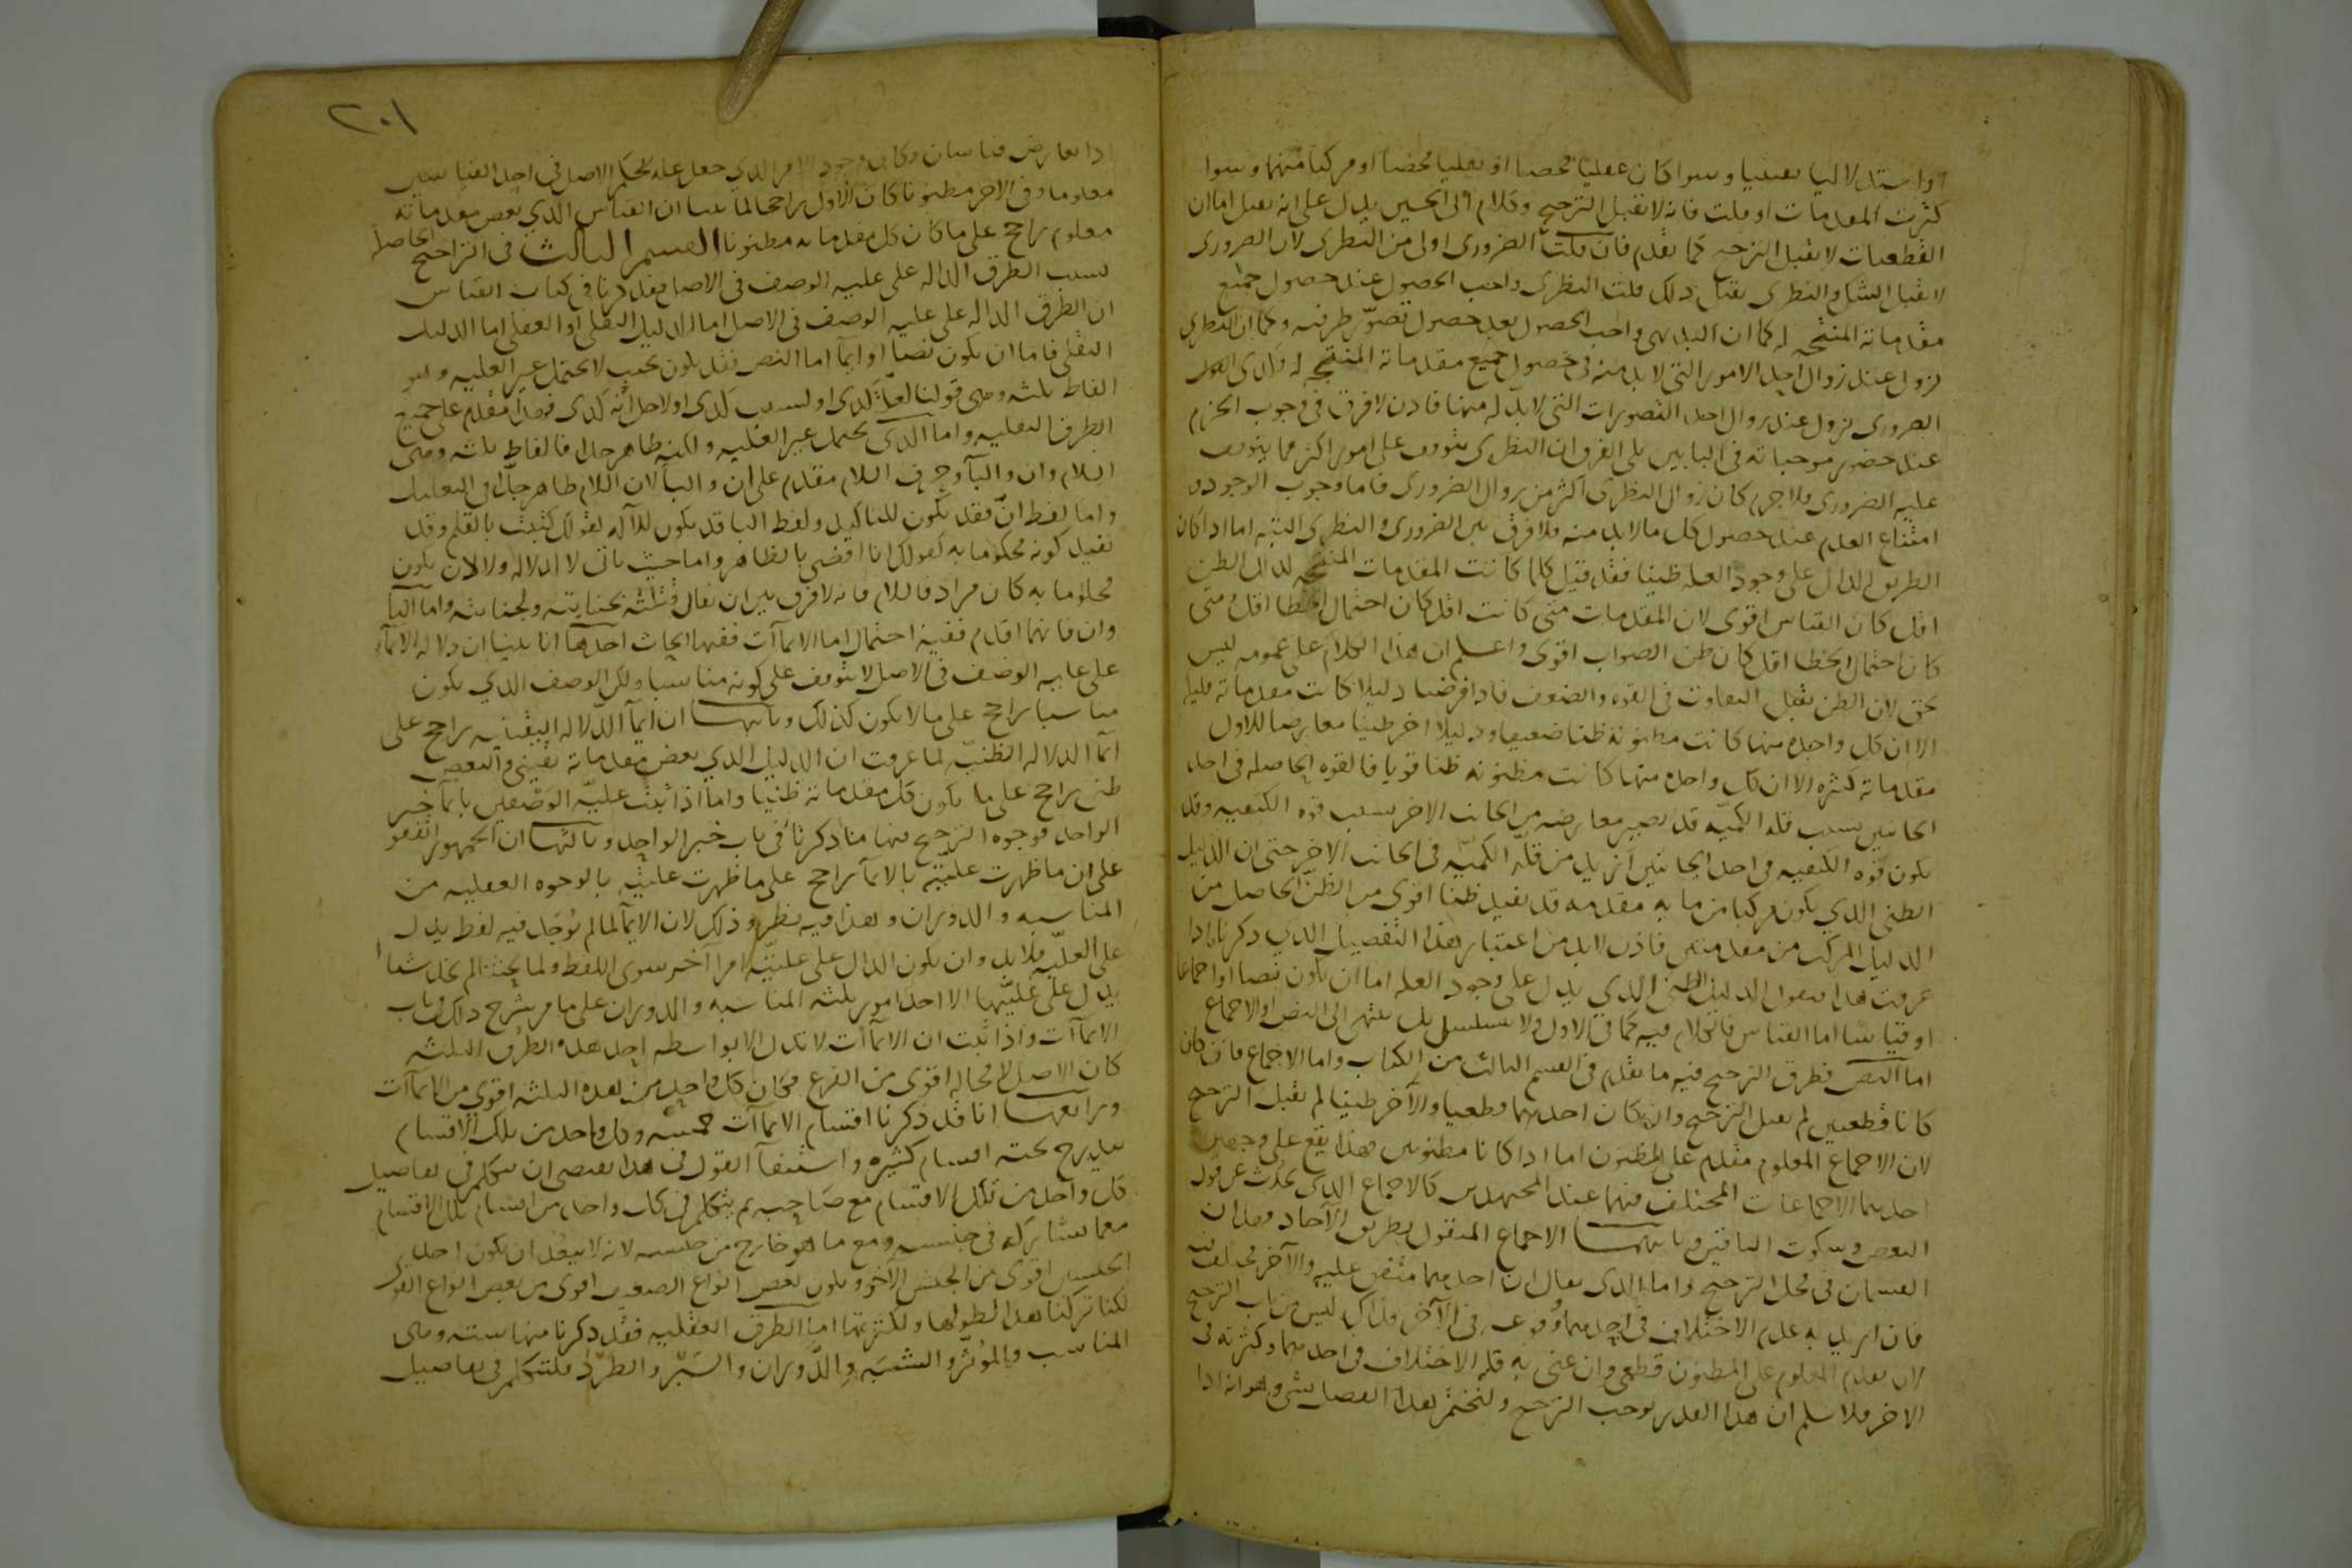 او استدلاليا يقينيا وسوا كان عقليا محضا او نقليا محضا او مركبا منهما وسوا
كثرت المقدمات او قلت فانه لا يقبل الترجيح وكلام ابى الحسين يدل على انه يقبل لنا ان
القطعيات لا يقبل الترجيح كما تقدم فان قلت الضرورى اولى من النظرى لان الضرورى
لا يقبل الشك والنظرى يقبل ذلك قلت النظرى واجب الحصول عند حصول جميع
مقدماته المنتجه له كما ان البديهى واجب الحصول بعد حصول تصور طرفيه وكما ان النظرى
يزول عند زوال احد الامور التى لابد منه فى حصول جميع مقدماته المنتجه له
الضرورى يزول عند زوال احد التصورات التى لابد له منها فاذن لا فرق فى وجوب الجزم
عند حضور موجباته فى البابين بلى الفرق ان النظرى يتوقف على امور اكثر مما يتوقف
عليه الضرورى فلا جرم كان زوال النظرى اكثر من زوال الضرورى فاما وجوب الوجود
امتناع العدم عند حصول كل مالابد منه فلا فرق بين الضرورى والنظرى البته اما اذا كان
الطريق الدال على وجود العله ظنيا فقد قيل كلما كانت المقدمات المنتجه لذلك الظن
اقل كان القياس اقوى لان المقدمات متى كانت اقل كان احتمال الخطا اقل ومتى
كان احتمال الخطا اقل كان ظن الصواب اقوى واعلم ان هذا الكلام على عمومه ليس
بحق لان الظن يقبل التفاوت فى القوه والضعف فاذا فرضنا دليلا كانت مقدماته قليله
الا ان كل واحده منها كانت مظنونه ظنا ضعيفا ودليلا اخر ظنيا معارضا للاول
مقدماته كثيره الا ان كل واحده منها كانت مظنونه ظنا قويا فالقوه الحاصله فى احد
الجانبين بسبب قله الكميه قد تصير معارضه من الجانب الاخر بسبب قوه الكيفيه وقد
يكون قوه الكيفيه فى احد الجانبين ازيد من قله الكميه فى الجانب الاخر حتى ان الدليل
الظنى الذي يكون مركبا من مايه مقدمه قد يفيد ظنا اقوى من الظن الحاصل من
الدليل المركب من مقدمتين فاذن لابد من اعتبار هذا التفصيل الذي ذكرناه اذا
عرفت هذا فنقول الدليل الظنى الذي يدل على وجود العله اما ان يكون نصا او اجماعا
او قياسا اما القياس فالكلام فيه كما فى الاول ولا يتسلسل بل ينتهى الى النص او الاجماع
اما النص فطرق الترجيح فيه ما تقدم فى القسم الثالث من الكتاب واما الاجماع فان كان
كانا قطعيين لم يقبل الترجيح وان كان احدهما قطعيا والآخر ظنيا لم يقبل الترجيح
لان الاجماع المعلوم مقدم على المظنون اما اذا كانا مظنونين فهذا يقع على وجهين
احدهما الاجماعات المختلف فيها عند المجتهدين كالاجماع الذى يحدث عن قول
البعض وسكوت الباقين وثانيهما الاجماع المنقول بطريق الآحاد فهذان
القسمان فى محل الترجيح واما الذى يقال ان احدهما متفق عليه والآخر مختلف فيه
فان اريد به عدم الاختلاف فى احدهما ووقوعه فى الآخر فذاك ليس من باب الترجيح
لان تقديم المعلوم على المظنون قطعى وان عنى به قله الاختلاف فى احدهما وكثرته فى
الاخر فلا نسلم ان هذا القدر يوجب الترجيح ولنختم هذا الفصل بشى وهو انه اذا
٢٠١
اذا تعارض قياسان وكان وجود الامر الذي جعل عله لحكم الاصل فى احد القياسين
معلوما وفى الاخر مظنونا كان الاول راجحا لما بينا ان القياس الذي بعض مقدماته
معلوم راجح على ما كان كل مقدماته مظنونا القسم الثالث فى التراجيح الحاصله
بسبب الطرق الداله على عليه الوصف فى الاصل فقد ذكرنا فى كتاب القياس
ان الطرق الداله على عليه الوصف فى الاصل اما الدليل النقلى او العقلى اما الدليل
النقلى فاما ان يكون نصا او ايمآ اما النص فقد يكون بحيث لا يحتمل غير العليه وهو
الفاظ ثلثه وهى قولنا لعله كذى او لسبب كذى او لاجل انه كذى فهذا مقدم على جميع
الطرق النقليه واما الذى يحتمل غير العليه ولكنه ظاهر جدا فالفاظ ثلثه وهى
اللام وان والبآ وحرف اللام مقدم على ان والبا لان اللام ظاهر جدا فى التعليل
واما لفظ ان فقد يكون للتاكيد ولفظ البا قد يكون للآله كقولك كتبت بالقلم وقد
تفيد كونه محكوما به كقولك انا اقضى بالظاهر واما حيث ياتى لا لدلاله ولا لان يكون
محكوما به كان مرادفا للام فانه لا فرق بين ان تقال قتلته بجنايته ولجنايته واما البآ
وان فايهما اقدم ففيه احتمال اما الايمآآت ففيها ابحاث احدها انا بينا ان دلاله الايمآ
على عليه الوصف فى الاصل لا يتوقف على كونه مناسبا ولكن الوصف الذي يكون
مناسبا راجح على ما لا يكون كذلك وثانيها ان ايمآ الدلاله اليقينيه راجح على
ايمآ الدلاله الظنيه لما عرفت ان الدليل الذي بعض مقدماته يقينى والبعض
ظنى راجح على ما يكون كل مقدماته ظنيا واما اذا ثبت عليه الوصفين بايمآ خبر
الواحد فوجوه الترجيح فيها ما ذكرنا فى باب خبر الواحد وثالثها ان الجمهور اتفقوا
على ان ما ظهرت عليته بالايمآ راجح على ما ظهرت عليته بالوجوه العقليه من
المناسبه والدوران وهذا فيه نظر وذلك لان الايمآ لما لم يوجد فيه لفظ يدل
على العليه فلابد وان يكون الدال على عليته امرا آخر سوى اللفظ ولما بحثنا لم نجد شيا
يدل على عليتها الا احد امور ثلثه المناسبه والدوران على ما مر شرح ذلك فى باب
الايمآآت واذا ثبت ان الايمآآت لا تدل الا بواسطه احد هذه الطرق الثلثه
كان الاصل لا محاله اقوى من الفرع فكان كل واحد من هذه الثلثه اقوى من الايمآآت
ورابعها انا قد ذكرنا اقسام الايمآآت خمسه وكل واحد من تلك الاقسام
يندرج تحته اقسام كثيره واستيفآ القول فى هذا يقتضى ان يتكلم فى تفاصيل
كل واحد من تلك الاقسام مع صاحبه ثم يتكلم فى كل واحد من اقسام تلك الاقسام
مع ما يشاركه فى جنسه ومع ما هو خارج من جنسه لانه لا يبعد ان يكون احد
الجنسين اقوى من الجنس الآخر ويكون بعض انواع الضعيف اقوى من بعض انواع القوى
لكنا تركنا هذا لطولها ولكثرتها اما الطرق العقليه فقد ذكرنا منها سته وهى
المناسب والمؤثر والشبه والدوران والسبر والطرد فلنتكلم فى تفاصيل